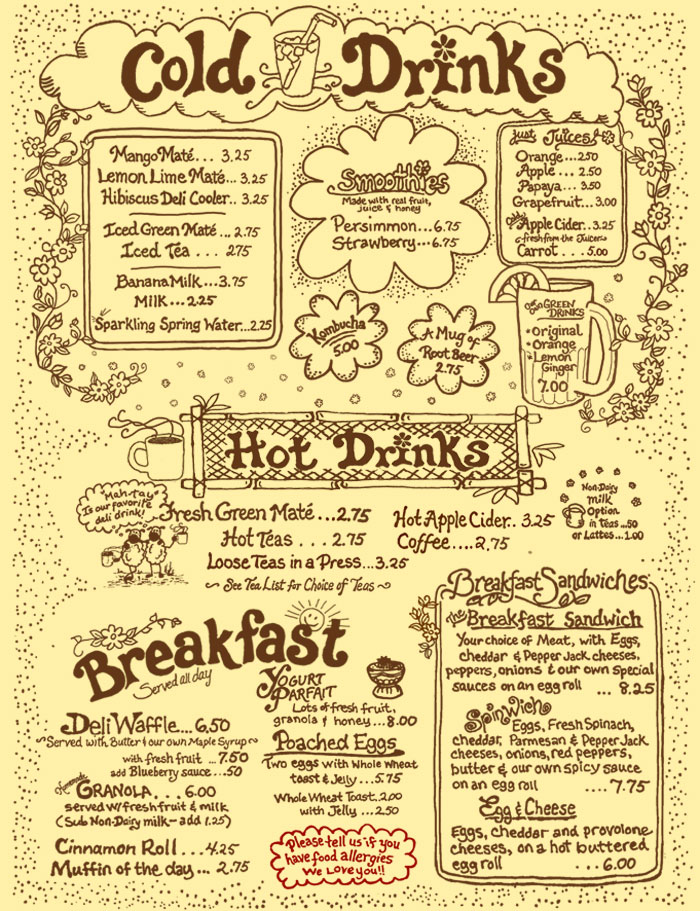 Cold Drinks
Mango Maté... 3.25
Lemon Lime Maté... 3.25
Hibiscus Deli Cooler.. 3.25
Iced Green Maté... 2.75
Iced Tea . . . 2.75
Banana Milk...3.75
Milk...2.25
Sparkling Spring Water...2.25
Smoothies
Made with real fruit,
juice & honey
Persimmon...6.75
Strawberry...6.75
Just Juices!
Orange...2.50
Apple... 2.50
Papaya... 3.50
Grapefruit...3.00
Apple Cider..3.25
fresh from the Juicer
Carrot .... 5.00
Kombucha
5.00
A Mug of
Root Beer
2.75
GREEN
DRINKS
• Original
Orange
• Lemon
Ginger
7.00
Hot Drinks
Mah-tay
Is our favorite
deli drink!
Fresh Green Maté ...2.75
Hot Teas . . . 2.75
Loose Teas in a Press...3.25
Hot Apple Cider.. 3.25
Coffee....2.75
~ See Tea List for Choice of Teas ~
Non-Dairy
milk
Option
in Teas ...50
or Lattes...1.00
Breakfast
Served all day
Deli Waffle... 6.50
~Served with Butter & our own Maple Syrup~
with fresh fruit ...7.50
add Blueberry sauce...50
Homemade
GRANOLA... 6.00
served w/fresh fruit & milk
(Sub Non-Dairy milk- add 1.25)
Cinnamon Roll ...4.25
Muffin of the day... 2.75
YOGURT
PARFAIT
Lots of fresh fruit,
granola & honey...8.00
Poached Eggs
Two eggs with Whole Wheat
toast & Jelly...5.75
Whole Wheat Toast..2.00
with Jelly ...2.50
Please tell us if you
have food allergies
We Love you!!
Breakfast Sandwiches
the Breakfast Sandwich
Your choice of Meat, with Eggs,
cheddar & Pepper Jack cheeses,
peppers, onions & our own special
sauces on an egg roll ... 8.25
Spinwich
Eggs, Fresh Spinach,
cheddar, Parmesan & Pepper Jack
cheeses, onions, red peppers,
butter & our own spicy sauce
on an egg roll .... 7.75
Egg & Cheese
Eggs, cheddar and provolone
cheeses, on a hot buttered
egg roll .... 6.00